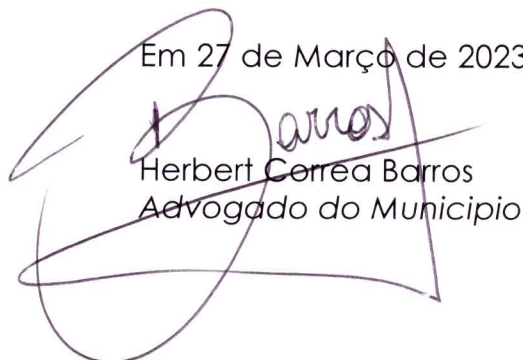 Em 27 de Março de 2023
Barros
Herbert Correa Barros
Advogado do Municipio